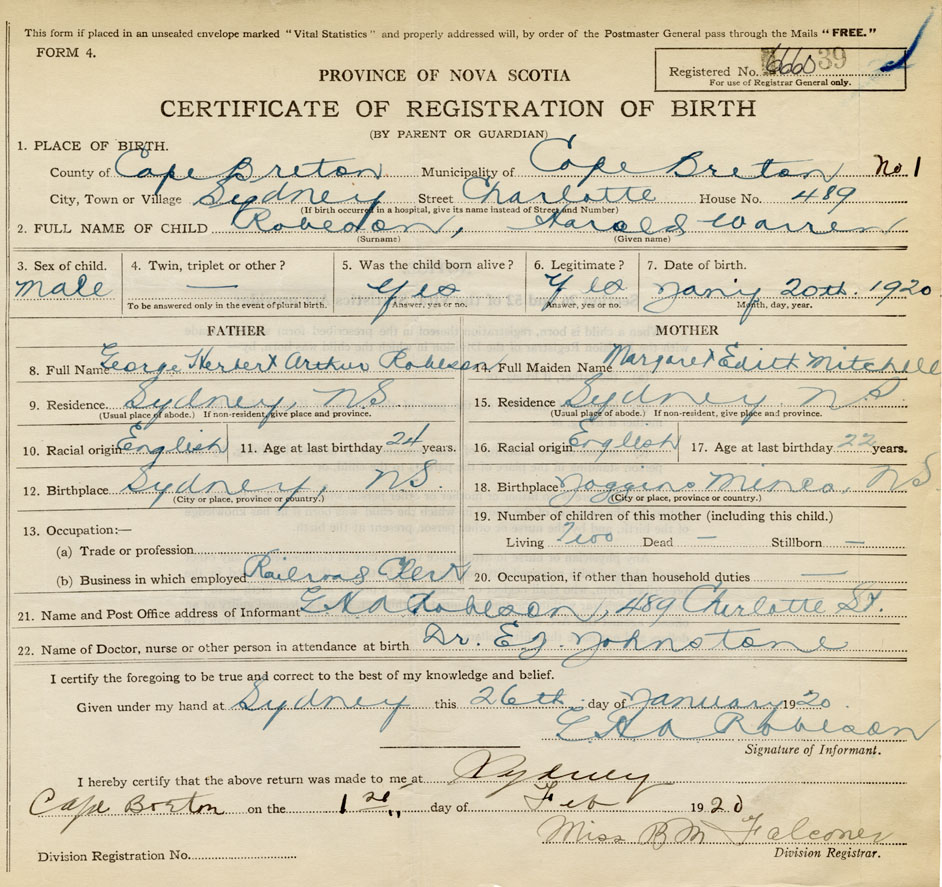 This form if placed in an unsealed envelope marked "Vital Statistics" and properly addressed will, by order of the Postmaster General pass through the Mails "FREE."
FORM 4.
Registered No. 39
For use of Registrar General only.
PROVINCE OF NOVA SCOTIA
CERTIFICATE OF REGISTRATION OF BIRTH
(BY PARENT OR GUARDIAN)
1. PLACE OF BIRTH.
County of Cape Breton Municipality of Cape Breton No. 1
City, Town or Village Sydney Street Charlotte House No. 489
(If birth occurred in a hospital, give its name instead of Street and Number)
2. FULL NAME OF CHILD Robeson, Harold Warren
(Surname) (Given name)
3. Sex of child. 4. Twin, triplet or other? 5. Was the child born alive? 6. Legitimate? 7. Date of birth.
male — Yes Yes Jan'y 20th. 1920.
To be answered only in the event of plural birth. Answer, yes or no. Answer, yes or no. Month, day, year.
FATHER MOTHER
8. Full Name George Herbert Arthur Robeson 14. Full Maiden Name Margaret Edith Mitchell
9. Residence Sydney, NS. 15. Residence Sydney, NS.
(Usual place of abode.) If non-resident, give place and province. (Usual place of abode.) If non-resident, give place and province.
10. Racial origin English 11. Age at last birthday 24 years. 16. Racial origin English 17. Age at last birthday 22 years.
12. Birthplace Sydney, NS. 18. Birthplace Joggins Mines, NS
(City or place, province or country.) (City or place, province or country.)
13. Occupation:— 19. Number of children of this mother (including this child.)
(a) Trade or profession Living Two Dead — Stillborn —
(b) Business in which employed Railroad Clerk 20. Occupation, if other than household duties —
21. Name and Post Office address of Informant G H A Robeson, 489 Charlotte St.
22. Name of Doctor, nurse or other person in attendance at birth Dr. E.J. Johnstone
I certify the foregoing to be true and correct to the best of my knowledge and belief.
Given under my hand at Sydney this 26th. day of January 1920.
G H A Robeson
Signature of Informant.
I hereby certify that the above return was made to me at Sydney
Cape Breton on the 1st day of Feb 1920
Miss B M Falconer
Division Registration No. Division Registrar.